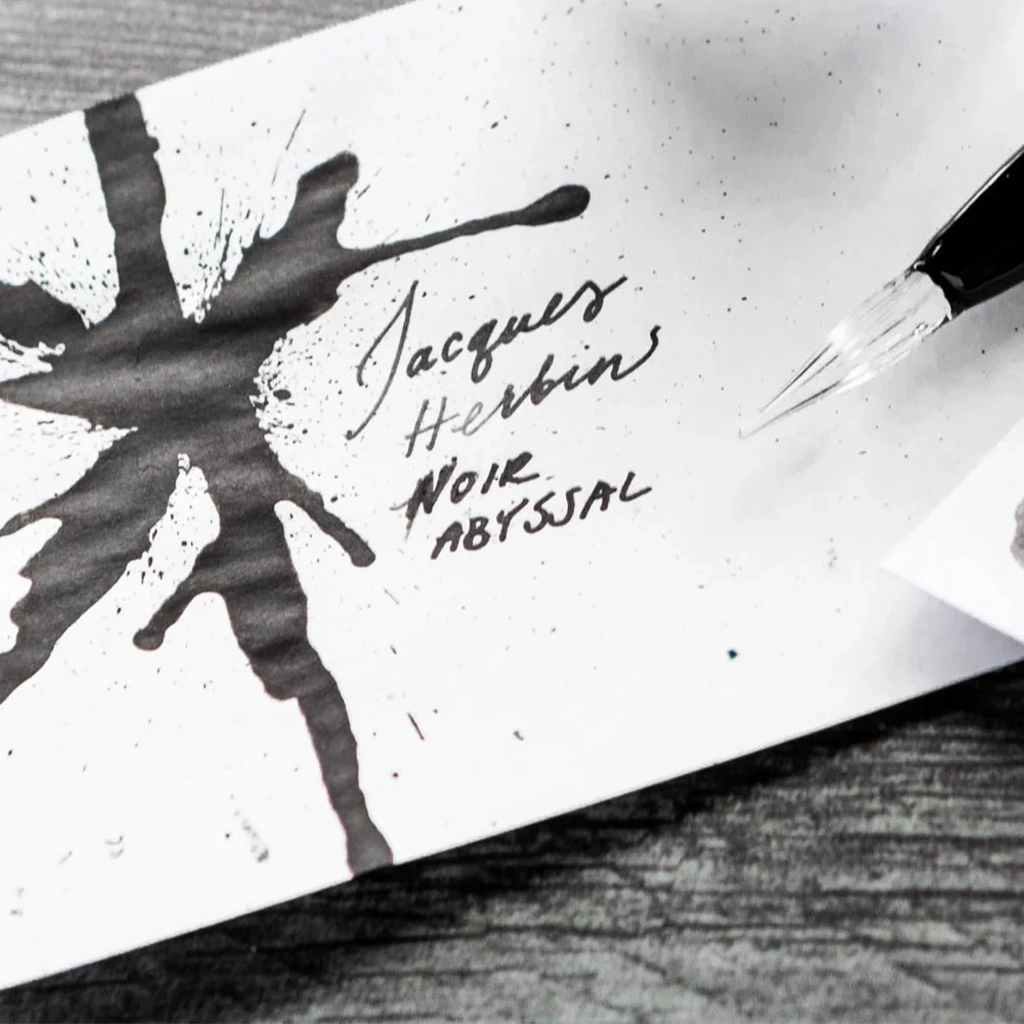 Jacques
Herbin
NOIR
ABYSSAL